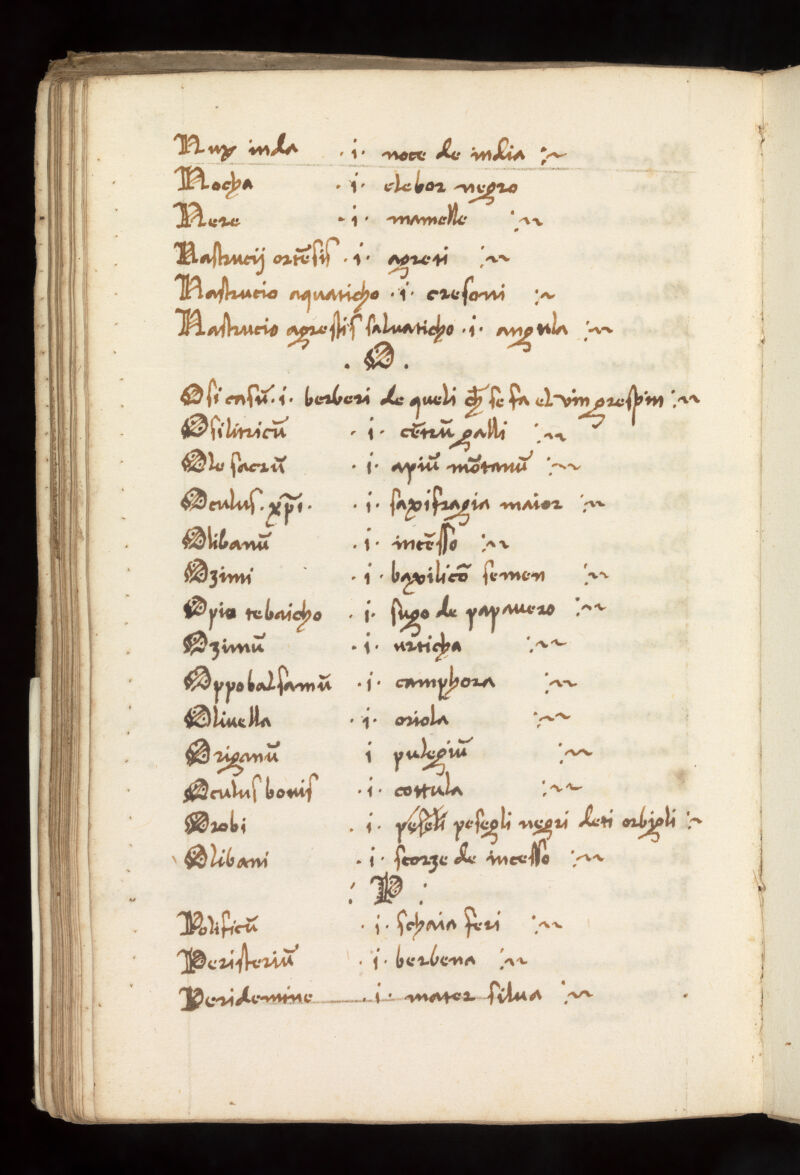 Nux inda .i. noce de india
Nocha .i. elebor negro
Nere .i. mamelle
Nastrucij ortēsis .i. agreti
Nastrucio aquaticho .i. cresoni
Nastrucio agrestis saluaticho .i. angula
. O .
Osi casū .i. berberi de queli ch̄ se fa el vin grespin
Osilitricū .i. cētrū galli
Ole sacrū .i. apiū mōtanū
Oculus . xp̄i . .i. saxifragia maior
Olibanū .i. incēsso
Ozimi .i. baxilicō semen
Opio tebaicho .i. sugo de papauero
Ozimū .i. urticha
Oppobalsamū .i. camphora
Oliuella .i. oriola
Origanū i pulegiū
Oculus bouis .i. cottula
Orobi .i. peseli pesegli negri deti orbigli
Olibani .i. scorze de incesso
: P :
Polificū .i. schaia feri
Peristeriū .i. berbena
Peridemine .i. mater silua